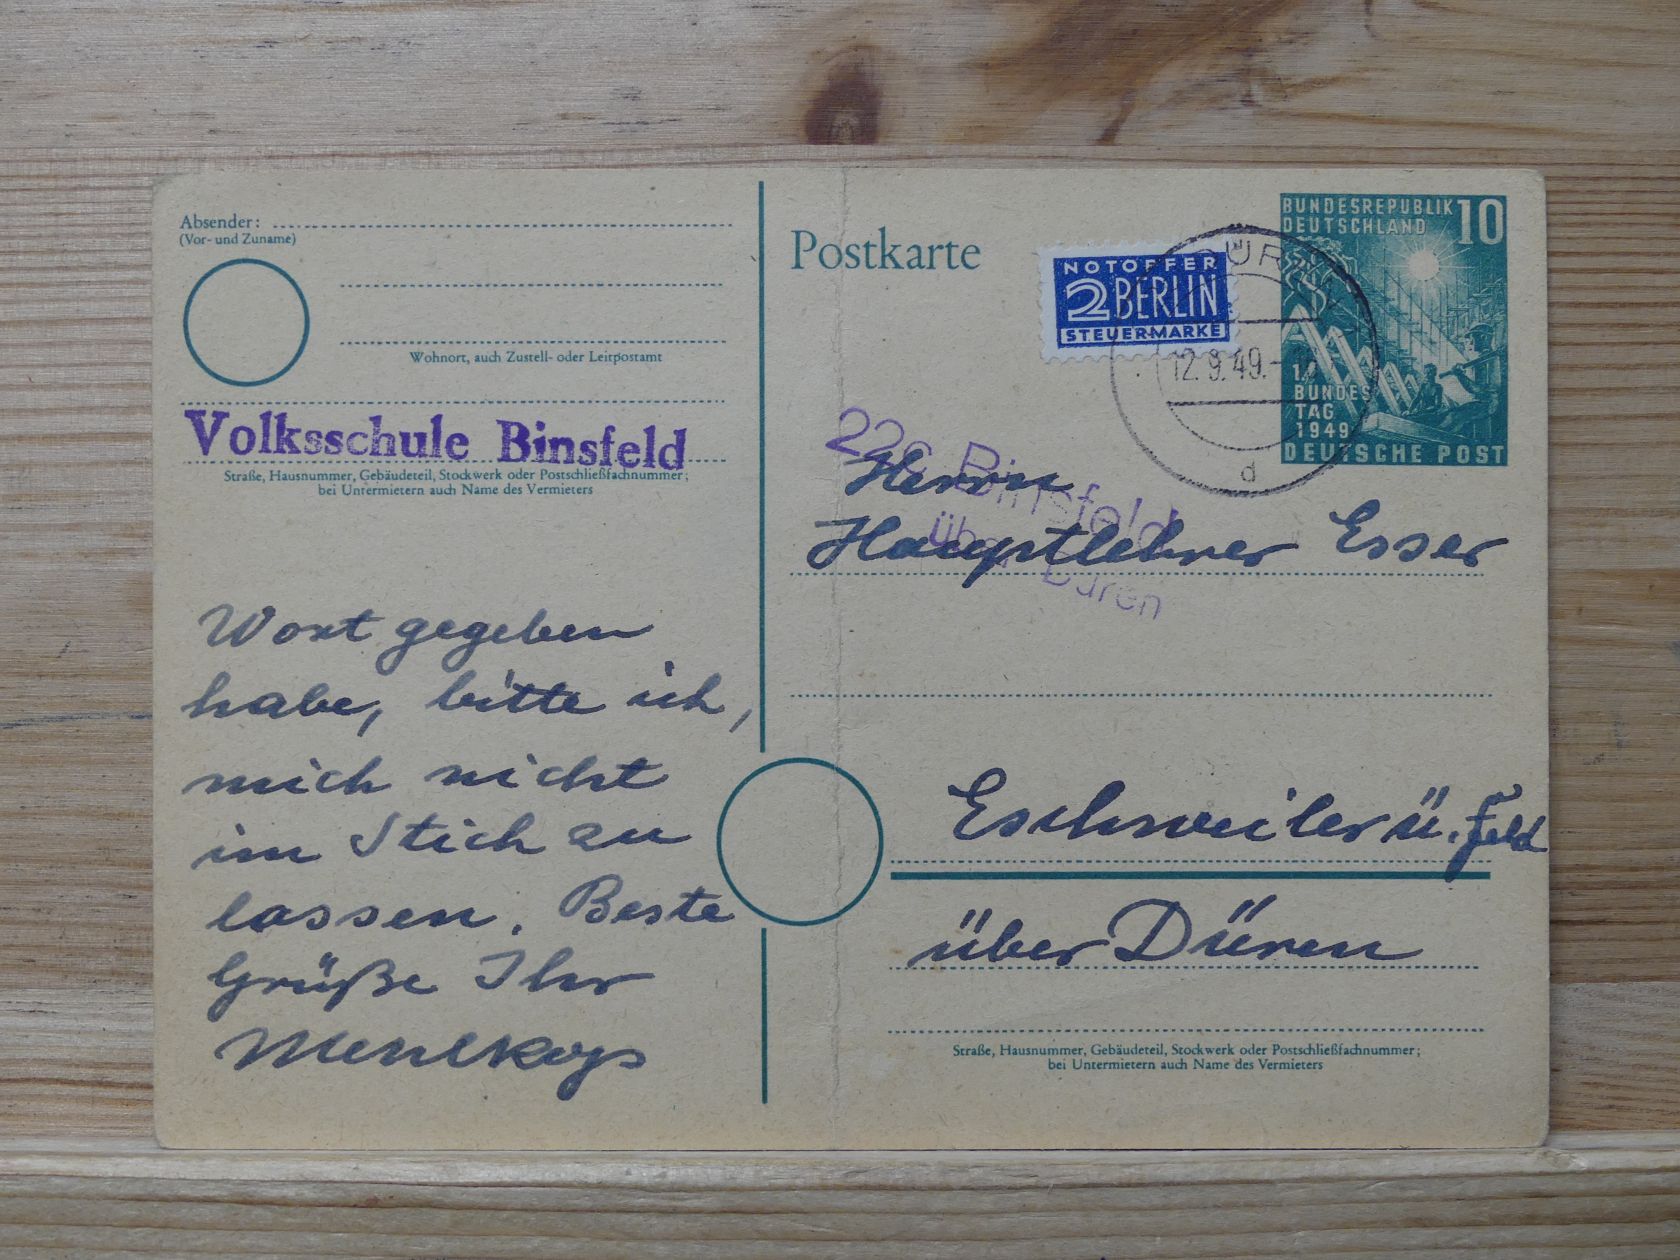 Absender:
(Vor- und Zuname)
Wohnort, auch Zustell- oder Leitpostamt
Volksschule Binsfeld
Straße, Hausnummer, Gebäudeteil, Stockwerk oder Postschließfachnummer;
bei Untermietern auch Name des Vermieters
Wort gegeben
habe, bitte ich,
mich nicht
im Stich zu
lassen. Beste
Grüße Ihr
Postkarte
NOTOPFER
2 BERLIN
STEUERMARKE
BUNDESREPUBLIK 10
DEUTSCHLAND
1.
BUNDES
TAG
1949
DEUTSCHE POST
DÜREN
12.9.49.
d
22c Binsfeld
über Düren
Herrn
Hauptlehrer Esser
Eschweiler ü. Feld
über Düren
Straße, Hausnummer, Gebäudeteil, Stockwerk oder Postschließfachnummer;
bei Untermietern auch Name des Vermieters